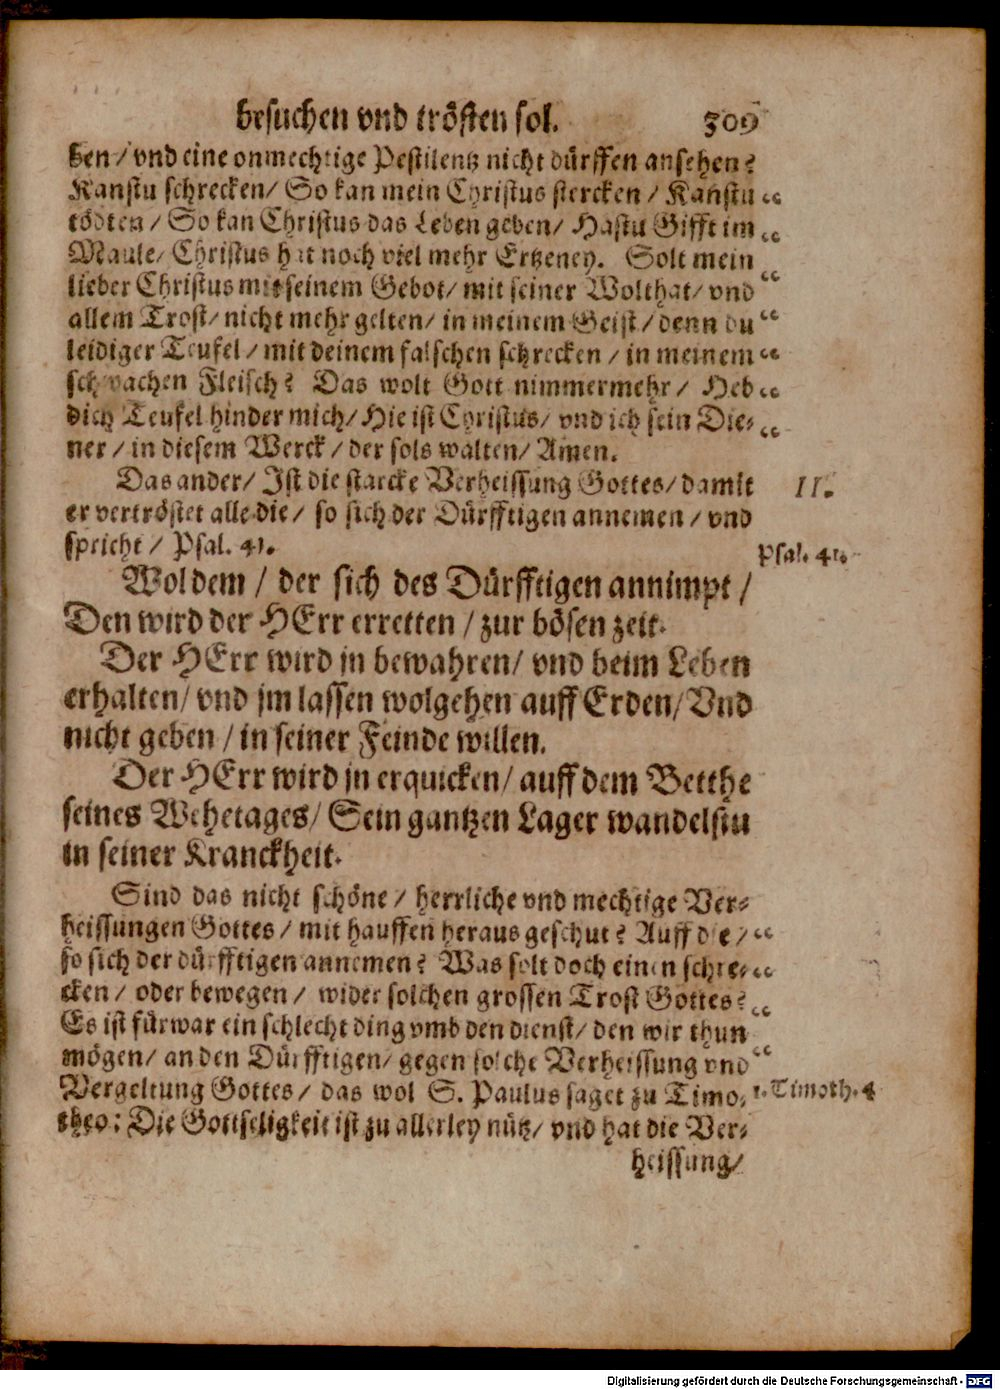 besuchen vnd trösten sol. 309
ben / vnd eine onmechtige Pestilentz nicht dürffen ansehen?
Kanstu schrecken / So kan mein Christus stercken / Kanstu “
tödten / So kan Christus das Leben geben / Hastu Gifft im “
Maule / Christus hat noch viel mehr Ertzeney. Solt mein
lieber Christus mit seinem Gebot / mit seiner Wolthat / vnd “
allem Trost / nicht mehr gelten / in meinem Geist / denn du “
leidiger Teufel / mit deinem falschen schrecken / in meinem “
schwachen Fleisch? Das wolt Gott nimmermehr / Heb “
dich Teufel hinder mich / Hie ist Christus / vnd ich sein Die- “
ner / in diesem Werck / der sols walten / Amen.
Das ander / Ist die starcke Verheissung Gottes / damit II.
er vertröstet alle die / so sich der Dürfftigen annemen / vnd
spricht / Psal. 41. Psal. 41.
Wol dem / der sich des Dürfftigen annimpt /
Den wird der HErr erretten / zur bösen zeit.
Der HErr wird jn bewahren / vnd beim Leben
erhalten / vnd jm lassen wolgehen auff Erden / Vnd
nicht geben / in seiner Feinde willen.
Der HErr wird jn erquicken / auff dem Betthe
seines Wehetages / Sein gantzen Lager wandelstu
in seiner Kranckheit.
Sind das nicht schöne / herrliche vnd mechtige Ver-
heissungen Gottes / mit hauffen heraus geschut? Auff die / “
so sich der dürfftigen annemen? Was solt doch einen schre- “
cken / oder bewegen / wider solchen grossen Trost Gottes? “
Es ist fürwar ein schlecht ding vmb den dienst / den wir thun
mögen / an den Dürfftigen / gegen solche Verheissung vnd “
Vergeltung Gottes / das wol S. Paulus saget zu Timo- 1. Timoth. 4
theo: Die Gottseligkeit ist zu allerley nütz / vnd hat die Ver-
heissung /
Digitalisierung gefördert durch die Deutsche Forschungsgemeinschaft - DFG